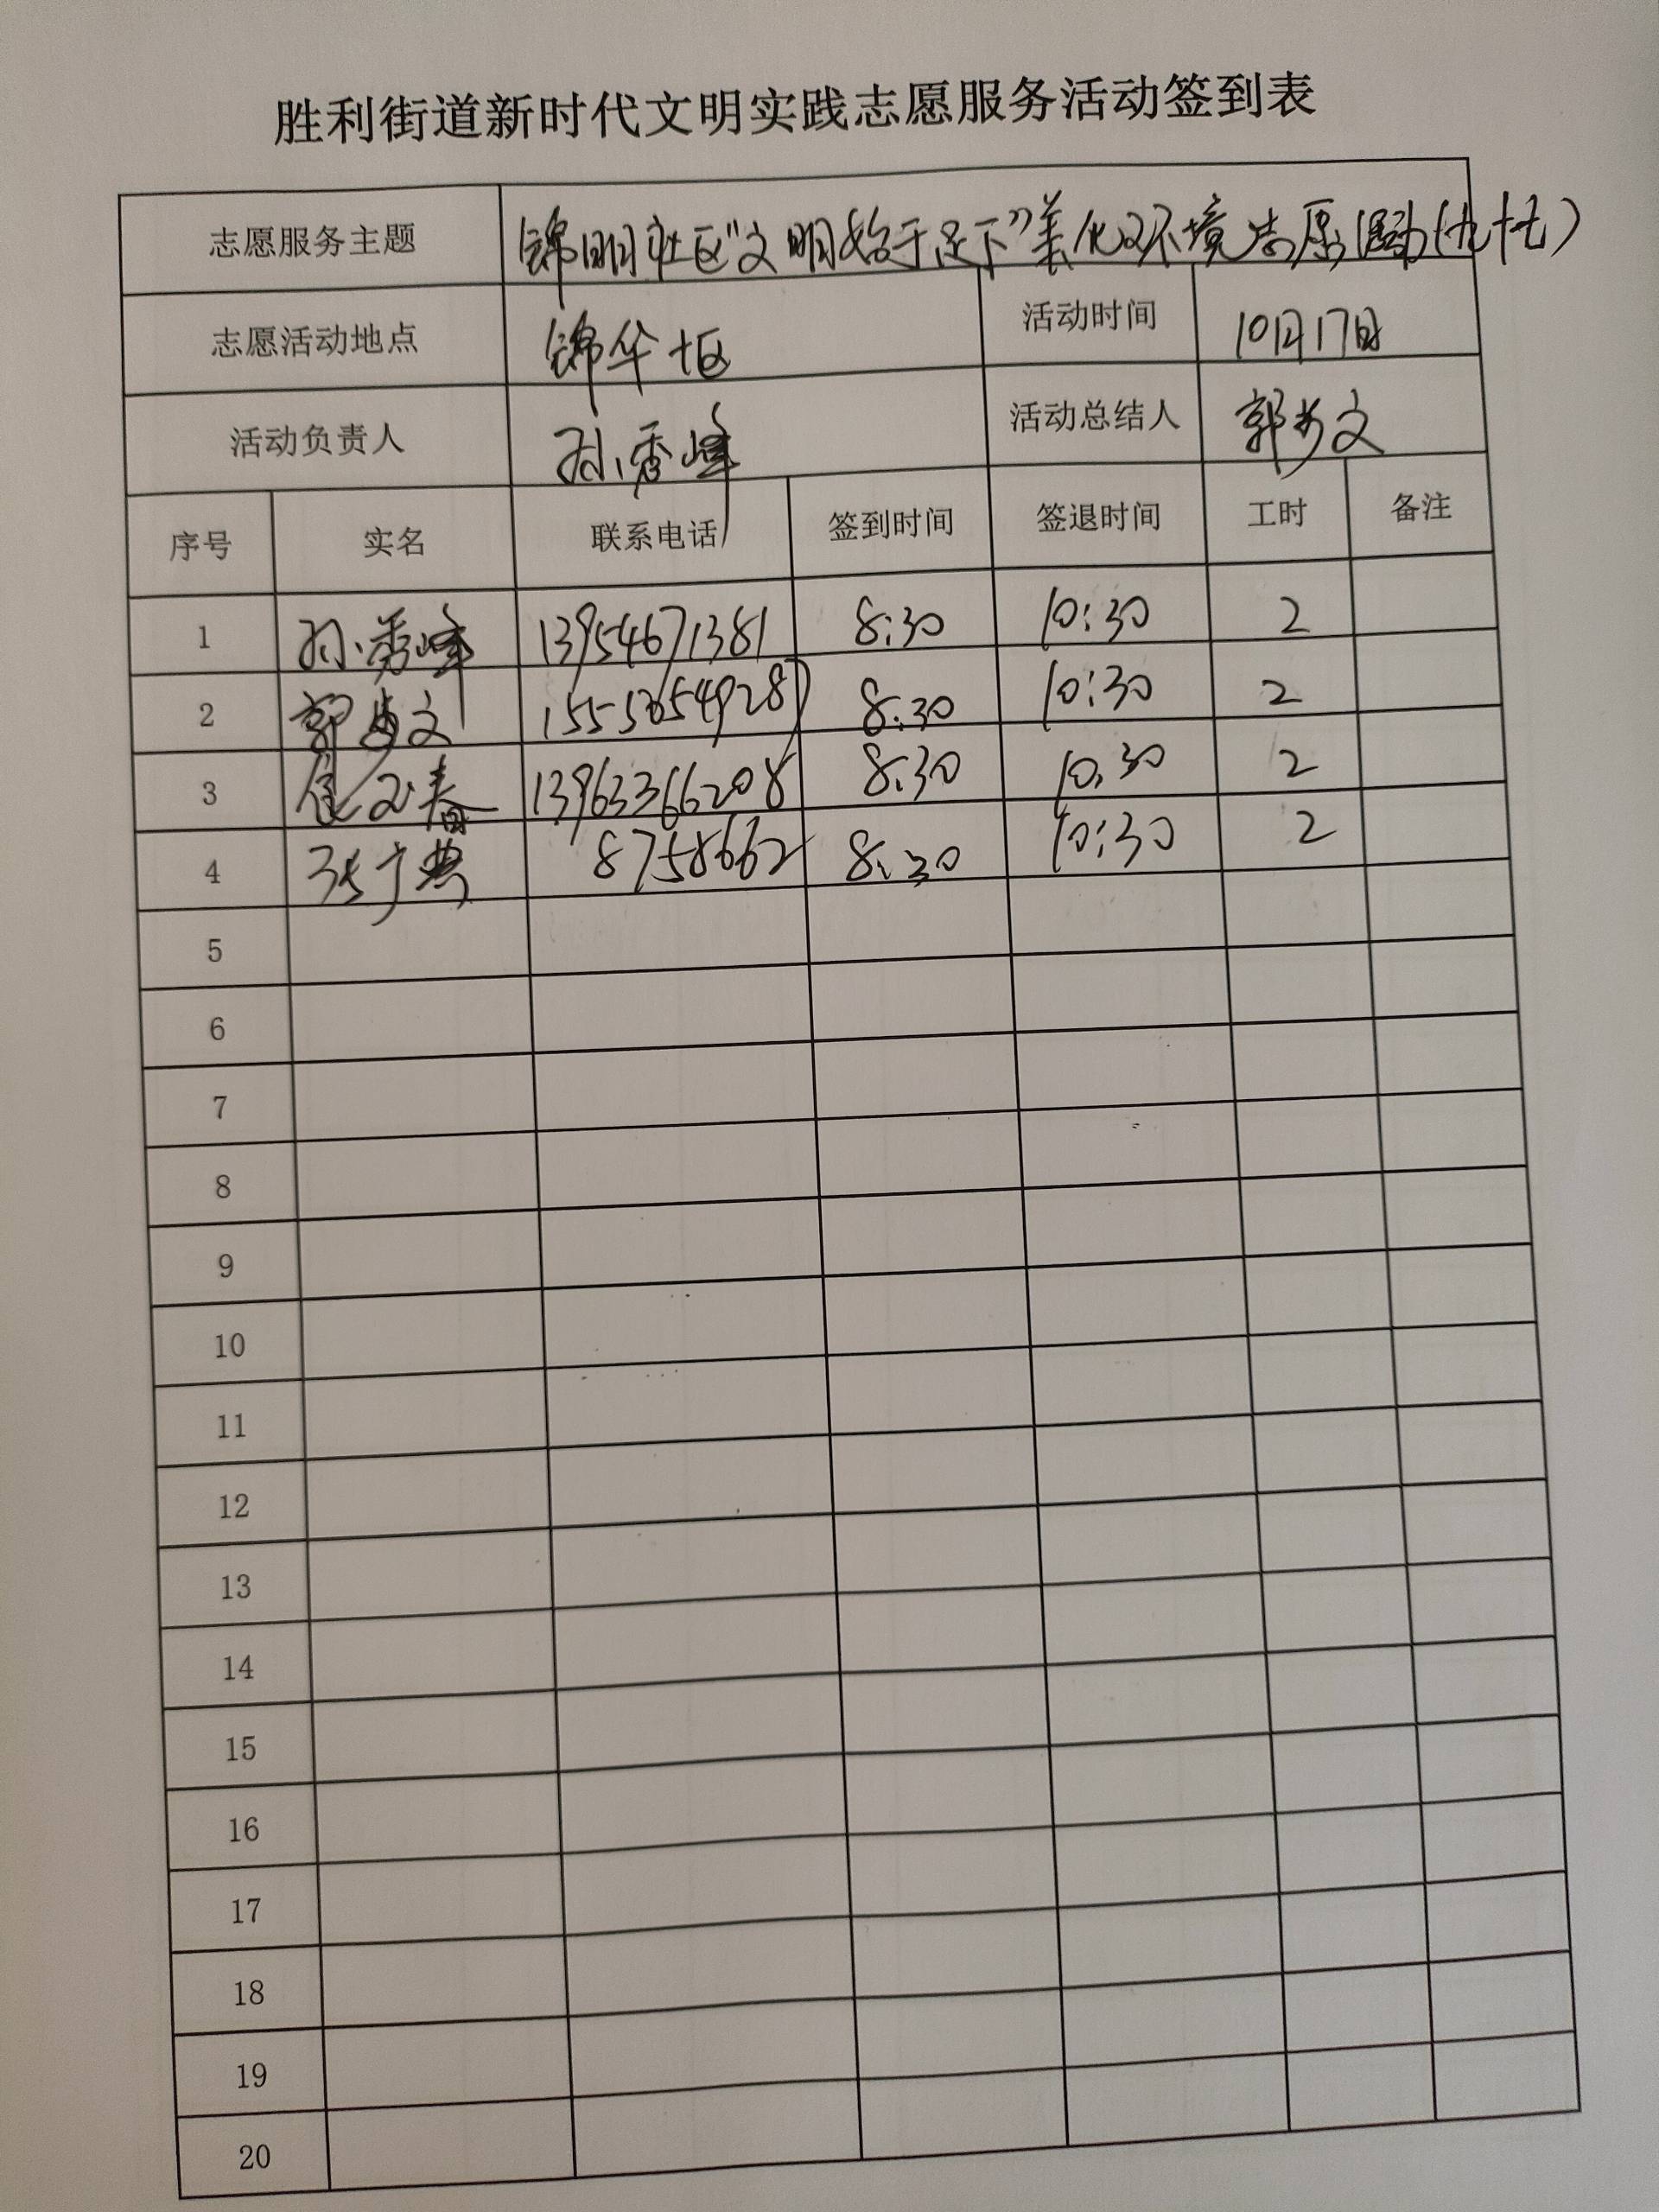 胜利街道新时代文明实践志愿服务活动签到表
志愿服务主题 锦明社区“文明始于足下”美化环境志愿活动(九十七)
志愿活动地点 锦华十区 活动时间 10月17日
活动负责人 孙秀峰 活动总结人 郭文
序号 实名 联系电话 签到时间 签退时间 工时 备注
1 孙秀峰 13954671381 8:30 10:30 2
2 郭文 8:30 10:30 2
3 春 13963366208 8:30 10:30 2
4 张广典 8758662 8:30 10:30 2
5
6
7
8
9
10
11
12
13
14
15
16
17
18
19
20